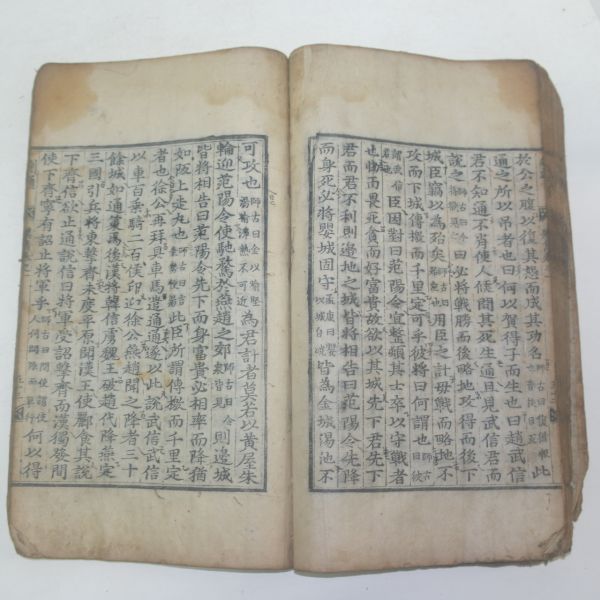 於公之腹以復其怨而成其功名師古曰復猶報也音扶目反此
通之所以吊者也曰何以賀得子而生也曰趙武信
君不知通不肖使人候問其死生通且見武信君而
說之曰必將戰勝而後略地攻得而後下
城臣竊以為殆矣師古曰殆危也用臣之計毋戰而略地不
攻而下城傳檄而千里定可乎彼將曰何謂也師古曰彼
謂武信君臣因對曰范陽令宜整頓其士卒以守戰者
也怯而畏死貪而好富貴故欲以其城先下君先下
君而君不利則邊地之城皆將相告曰范陽令先降
而身死必將嬰城固守孟康曰嬰以城自繞皆為金城湯池不
可攻也師古曰金以喻堅湯喻沸熱不可近為君計者莫若以黃屋朱
輪迎范陽令使馳騖於燕趙之郊師古曰令眾皆見則邊城
皆將相告曰范陽令先下而身富貴必相率而降猶
如阪上走丸也師古曰言乘勢便易此臣所謂傳檄而千里定
者也徐公再拜具車馬遣通通遂以此說武信武信
以車百乘騎二百侯印迎徐公燕趙聞之降者三十
餘城如通策焉後漢將韓信虜魏王破趙代降燕定
三國引兵將東擊齊未度平原聞漢王使酈食其說
下齊信欲止通說信曰將軍受詔擊齊而漢獨發間
使下齊寧有詔止將軍乎師古曰間使謂使人伺間隙而單行何以得